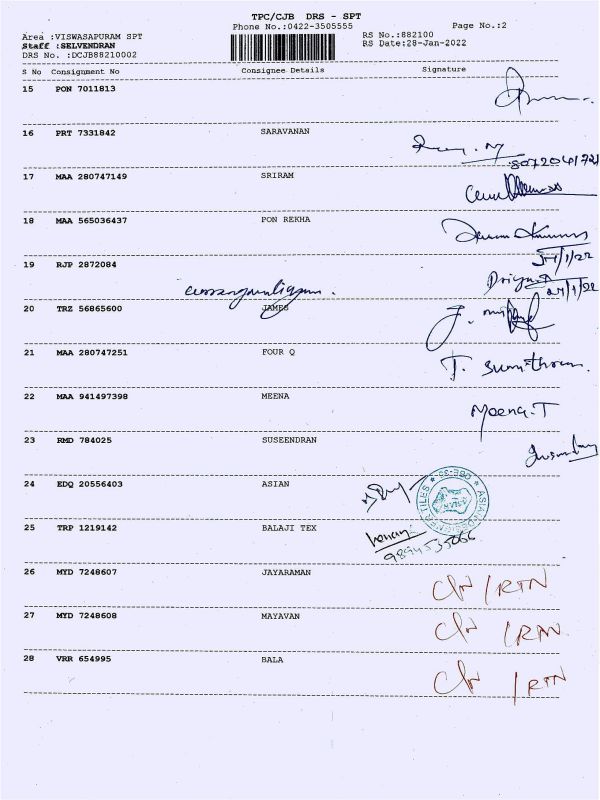 TPC/CJB DRS - SPT
Phone No.:0422-3505555 Page No.:2
Area :VISWASAPURAM SPT RS No.:882100
Staff :SELVENDRAN RS Date:28-Jan-2022
DRS No. :DCJB88210002
S No Consignment No Consignee Details Signature
15 PON 7011813
16 PRT 7331842 SARAVANAN
17 MAA 280747149 SRIRAM
18 MAA 565036437 PON REKHA
19 RJP 2872084
20 TRZ 56865600 JAMES
21 MAA 280747251 FOUR Q
T. Sumithran.
22 MAA 941497398 MEENA
Meena.T
23 RMD 784025 SUSEENDRAN
24 EDQ 20556403 ASIAN
25 TRP 1219142 BALAJI TEX
9894535066
26 MYD 7248607 JAYARAMAN
/RTN
27 MYD 7248608 MAYAVAN
/RTN
28 VRR 654995 BALA
/RTN